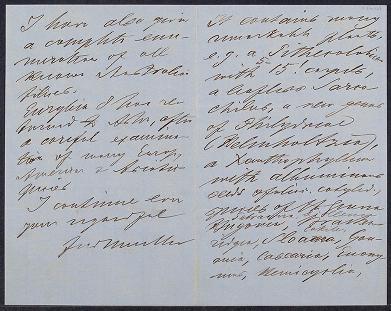 I have also given
a complete enu-
meration of all
known Australian
Eurybia I have re-
turned to Aster, after
a careful examina-
tion of many Europ,
American & Asiatic
species
I continue ever
your regardful
Ferd Mueller
It contains many
remarkable plants,
e.g. a
with 15! carpels,
a leafless Sarco-
chilus, a new genus
of Philydreae
(Helmholtzia),
a Xanthophyllum
with albuminous
seeds & foliac. cotyled.,
species of the genera
ania, Casearia, Evony-
mus, Hemicyclia,